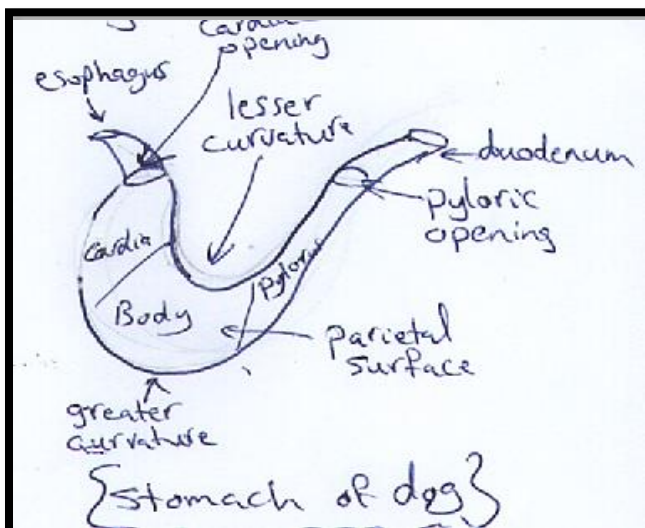 opening
esophagus
lesser
curvature
duodenum
pyloric
opening
cardia
pylorus
Body
parietal
surface
greater
curvature
{stomach of dog}